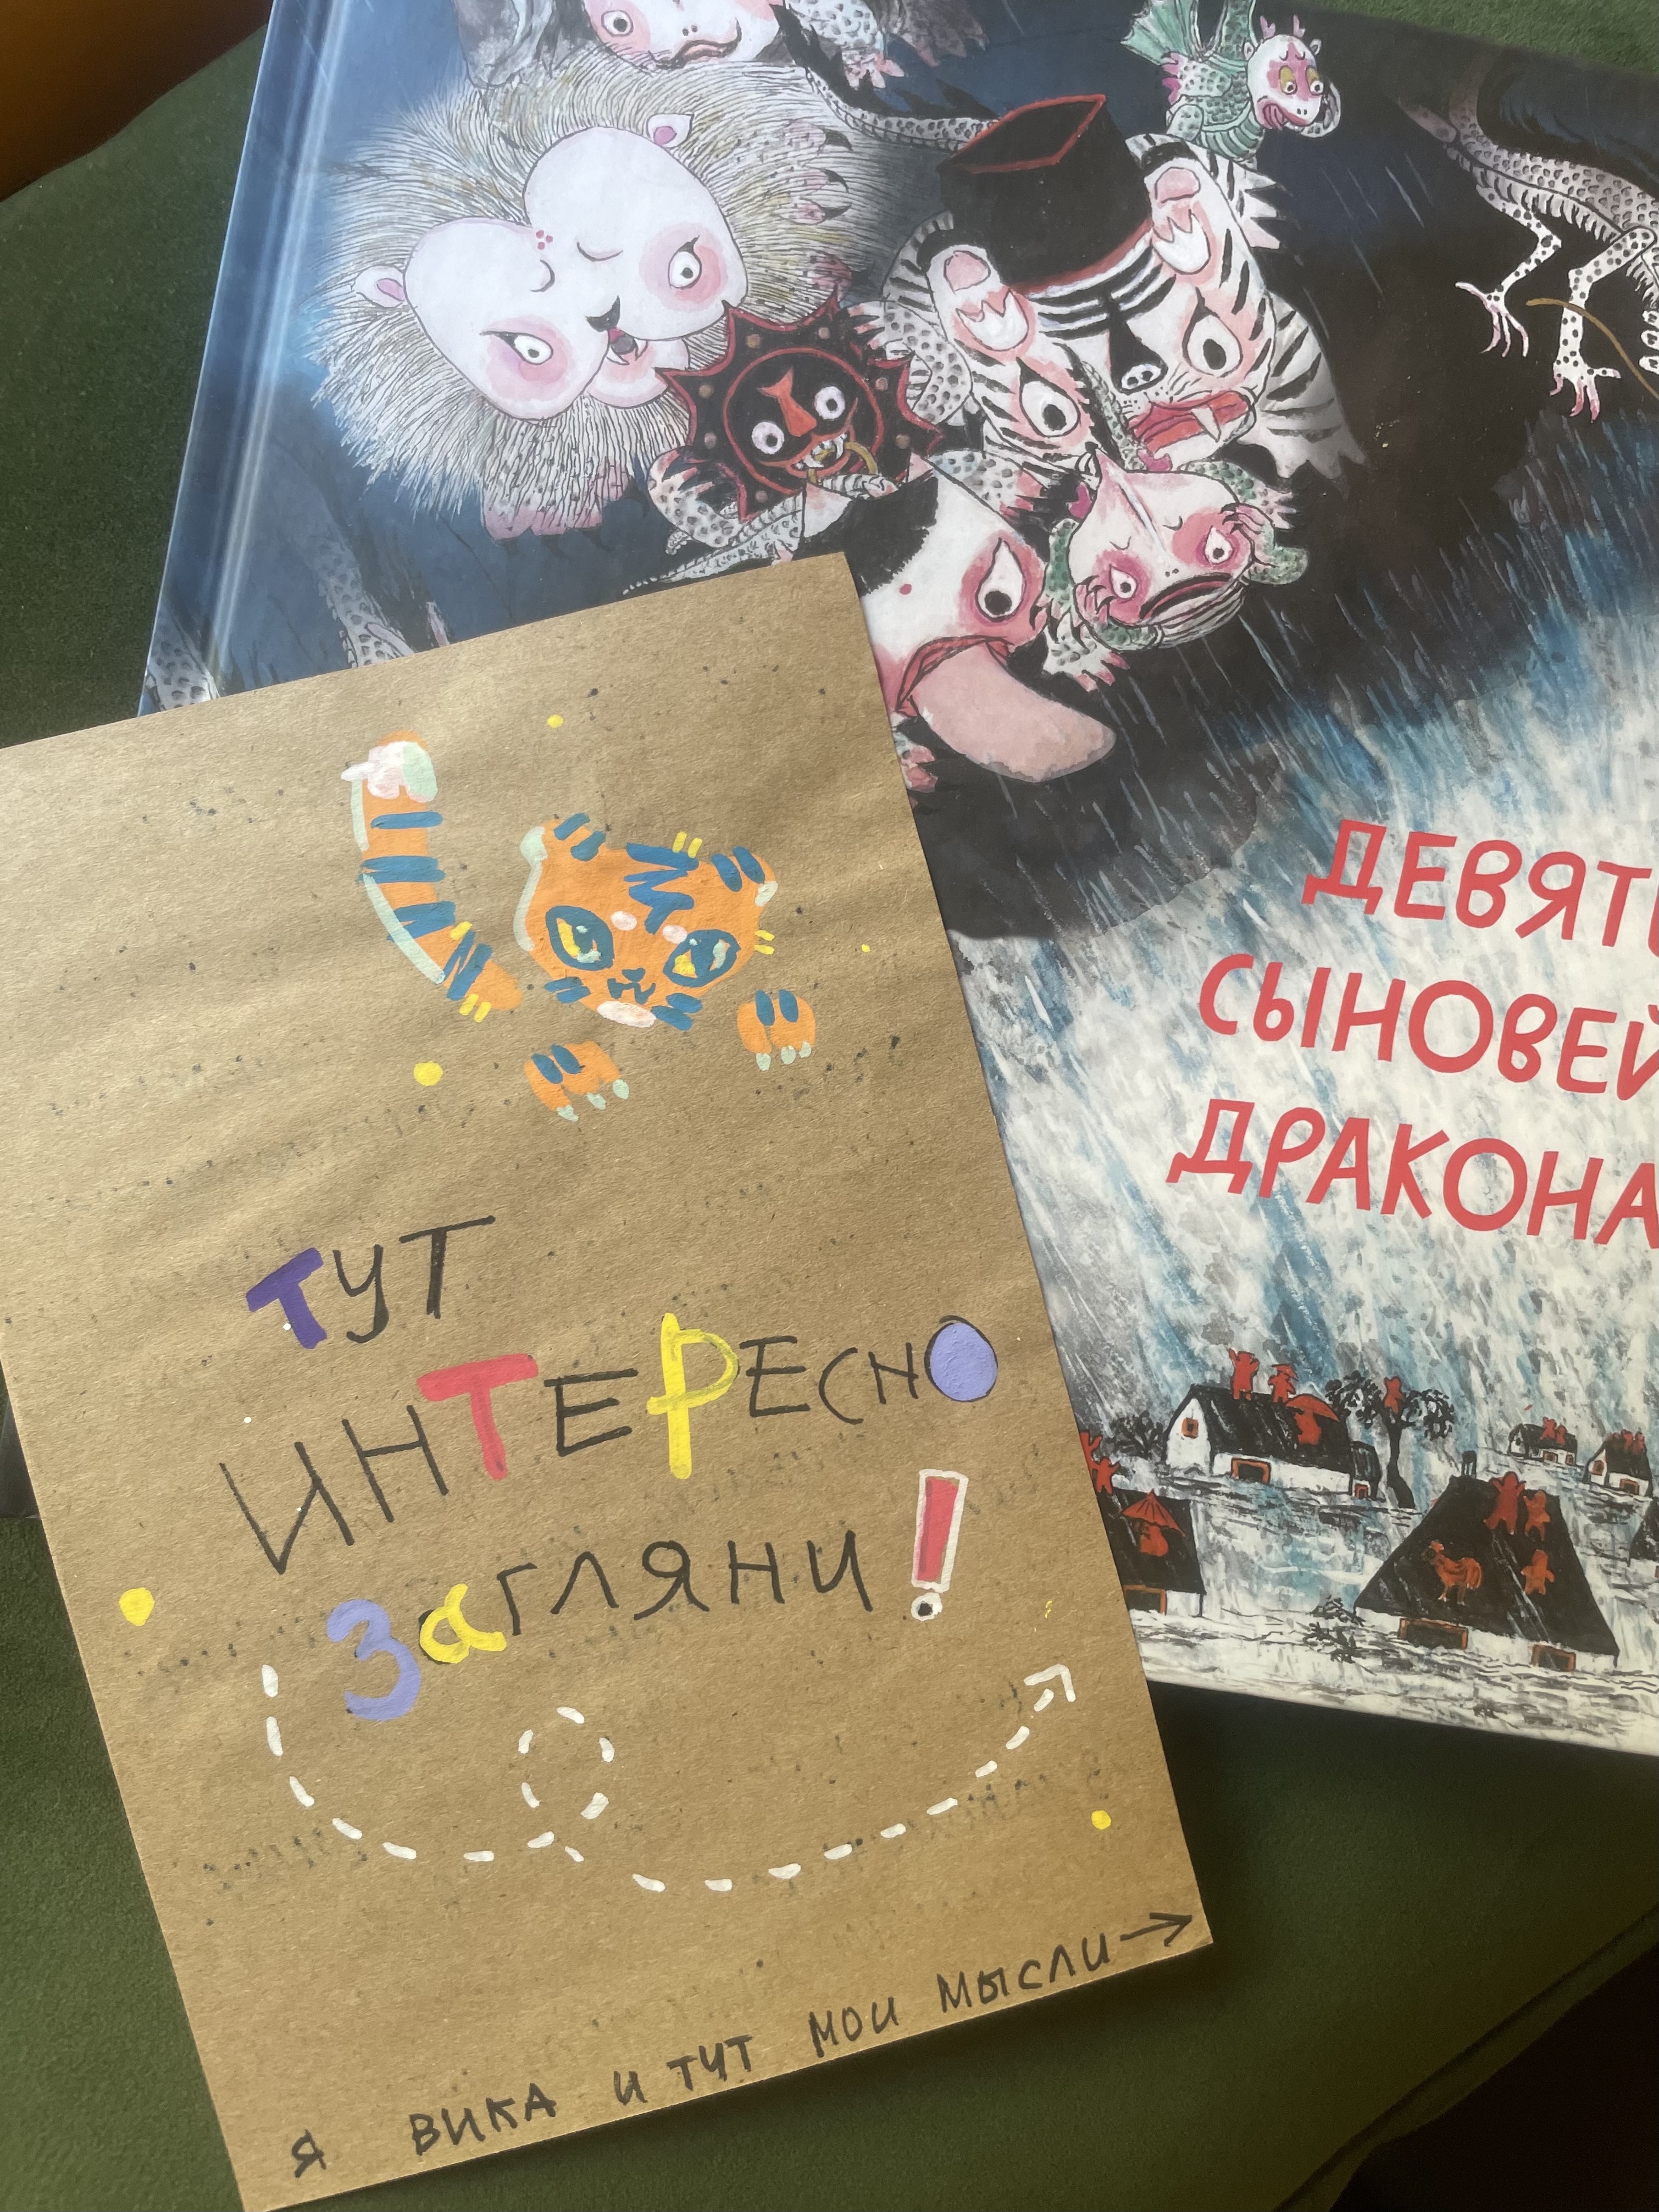 ДЕВЯТЬ
СЫНОВЕЙ
ДРАКОНА
ТУТ
ИНТЕРЕСНО
Загляни!
Я ВИКА И ТУТ МОИ МЫСЛИ→